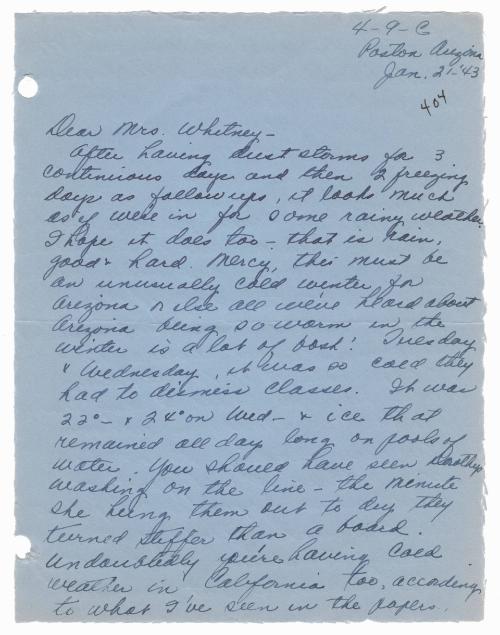 4-9-C
Poston Arizona
Jan. 21-'43
404
Dear Mrs. Whitney-
After having dust storms for 3
continuious days and then 2 freezing
days as follow ups, it looks much
as if we're in for some rainy weather.
I hope it does too - that is rain,
good & hard. Mercy, this must be
an unusually cold winter for
Arizona or else all we've heard about
Arizona being so warm in the
winter is a lot of bosh! Tuesday
& Wednesday, it was so cold they
had to dismiss classes. It was
22°- & 24° on Wed- & ice that
remained all day long on pools of
water. You should have seen Dorothy's
washing on the line - the minute
she hung them out to dry they
turned stiffer than a board.
Undoubtedly you're having cold
weather in California too, according
to what I've seen in the papers.